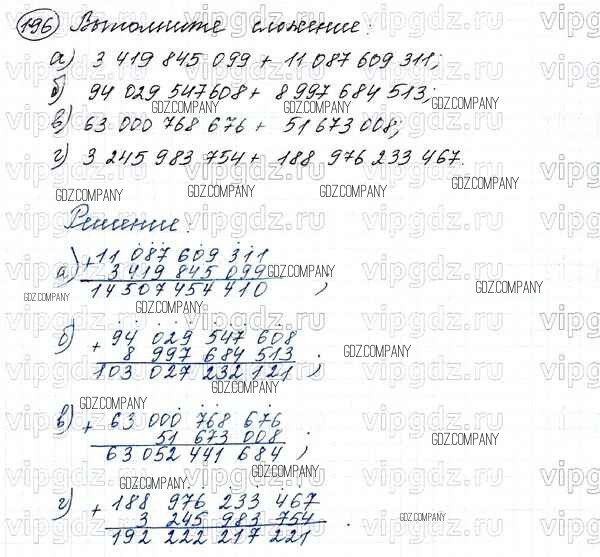 196 Выполните сложение:
а) 3 419 845 099 + 11 087 609 311;
б) 94 029 547 608 + 8 997 684 513;
в) 63 000 768 676 + 51 673 008;
г) 3 245 983 754 + 188 976 233 467.
Решение:
а) + 11 087 609 311
3 419 845 099
14 507 454 410 ;
б) + 94 029 547 608
8 997 684 513
103 027 232 121 ;
в) + 63 000 768 676
51 673 008
63 052 441 684 ;
г) + 188 976 233 467
3 245 983 754
192 222 217 221 .